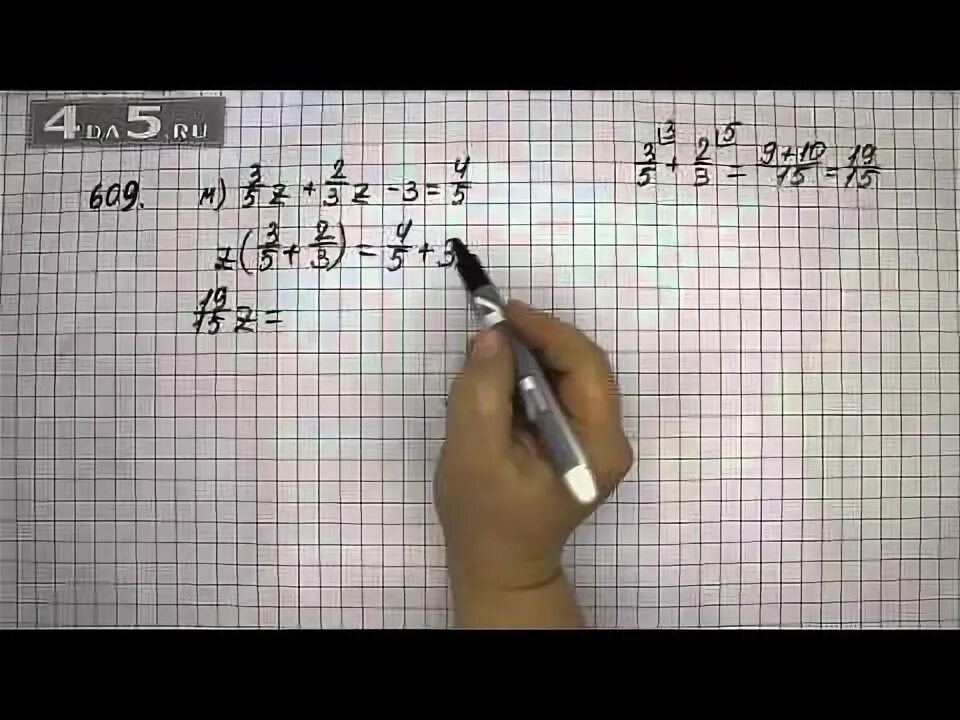 4DA5.RU
609. м) 3/5 z + 2/3 z - 3 = 4/5
z(3/5 + 2/3) = 4/5 + 3
19/15 z =
3/5 |3 + 2/3 |5 = 9+10/15 = 19/15